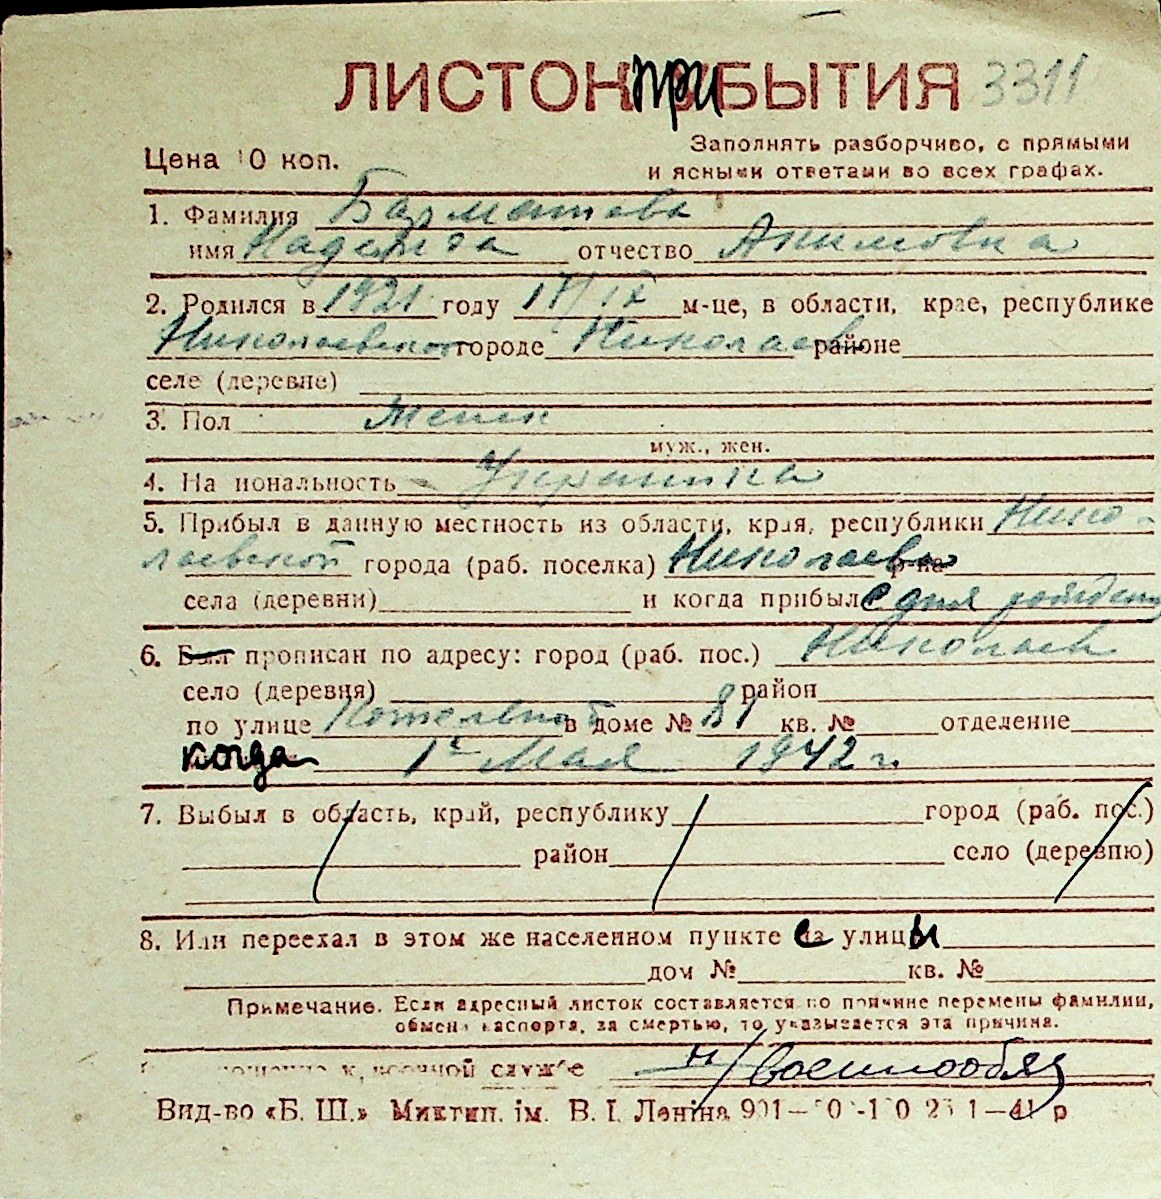 ЛИСТОК при БЫТИЯ 3311
Цена 10 коп.
Заполнять разборчиво, с прямыми
и ясными ответами во всех графах.
1. Фамилия
имя Надежда отчество Акимовна
2. Родился в 1921 году 17/IX м-це, в области, крае, республике
Николаевской городе Николаев районе
селе (деревне)
3. Пол женск
муж., жен.
4. Национальность Украинка
5. Прибыл в данную местность из области, края, республики Нико-
лаевской города (раб. поселка) Николаева р-на
села (деревни) и когда прибыл с дня рождения
6. Был прописан по адресу: город (раб. пос.) Николаев
село (деревня) район
по улице Котельной в доме № 81 кв. № отделение
когда 1го Мая 1942 г.
7. Выбыл в область, край, республику город (раб. пос.)
район село (деревню)
8. Или переехал в этом же населенном пункте с улицы
дом № кв. №
Примечание. Если адресный листок составляется по причине перемены фамилии,
обмена паспорта, за смертью, то указывается эта причина.
к военной службе н/военнообяз
Вид-во «Б. Ш.» Миктип. ім. В. І. Леніна